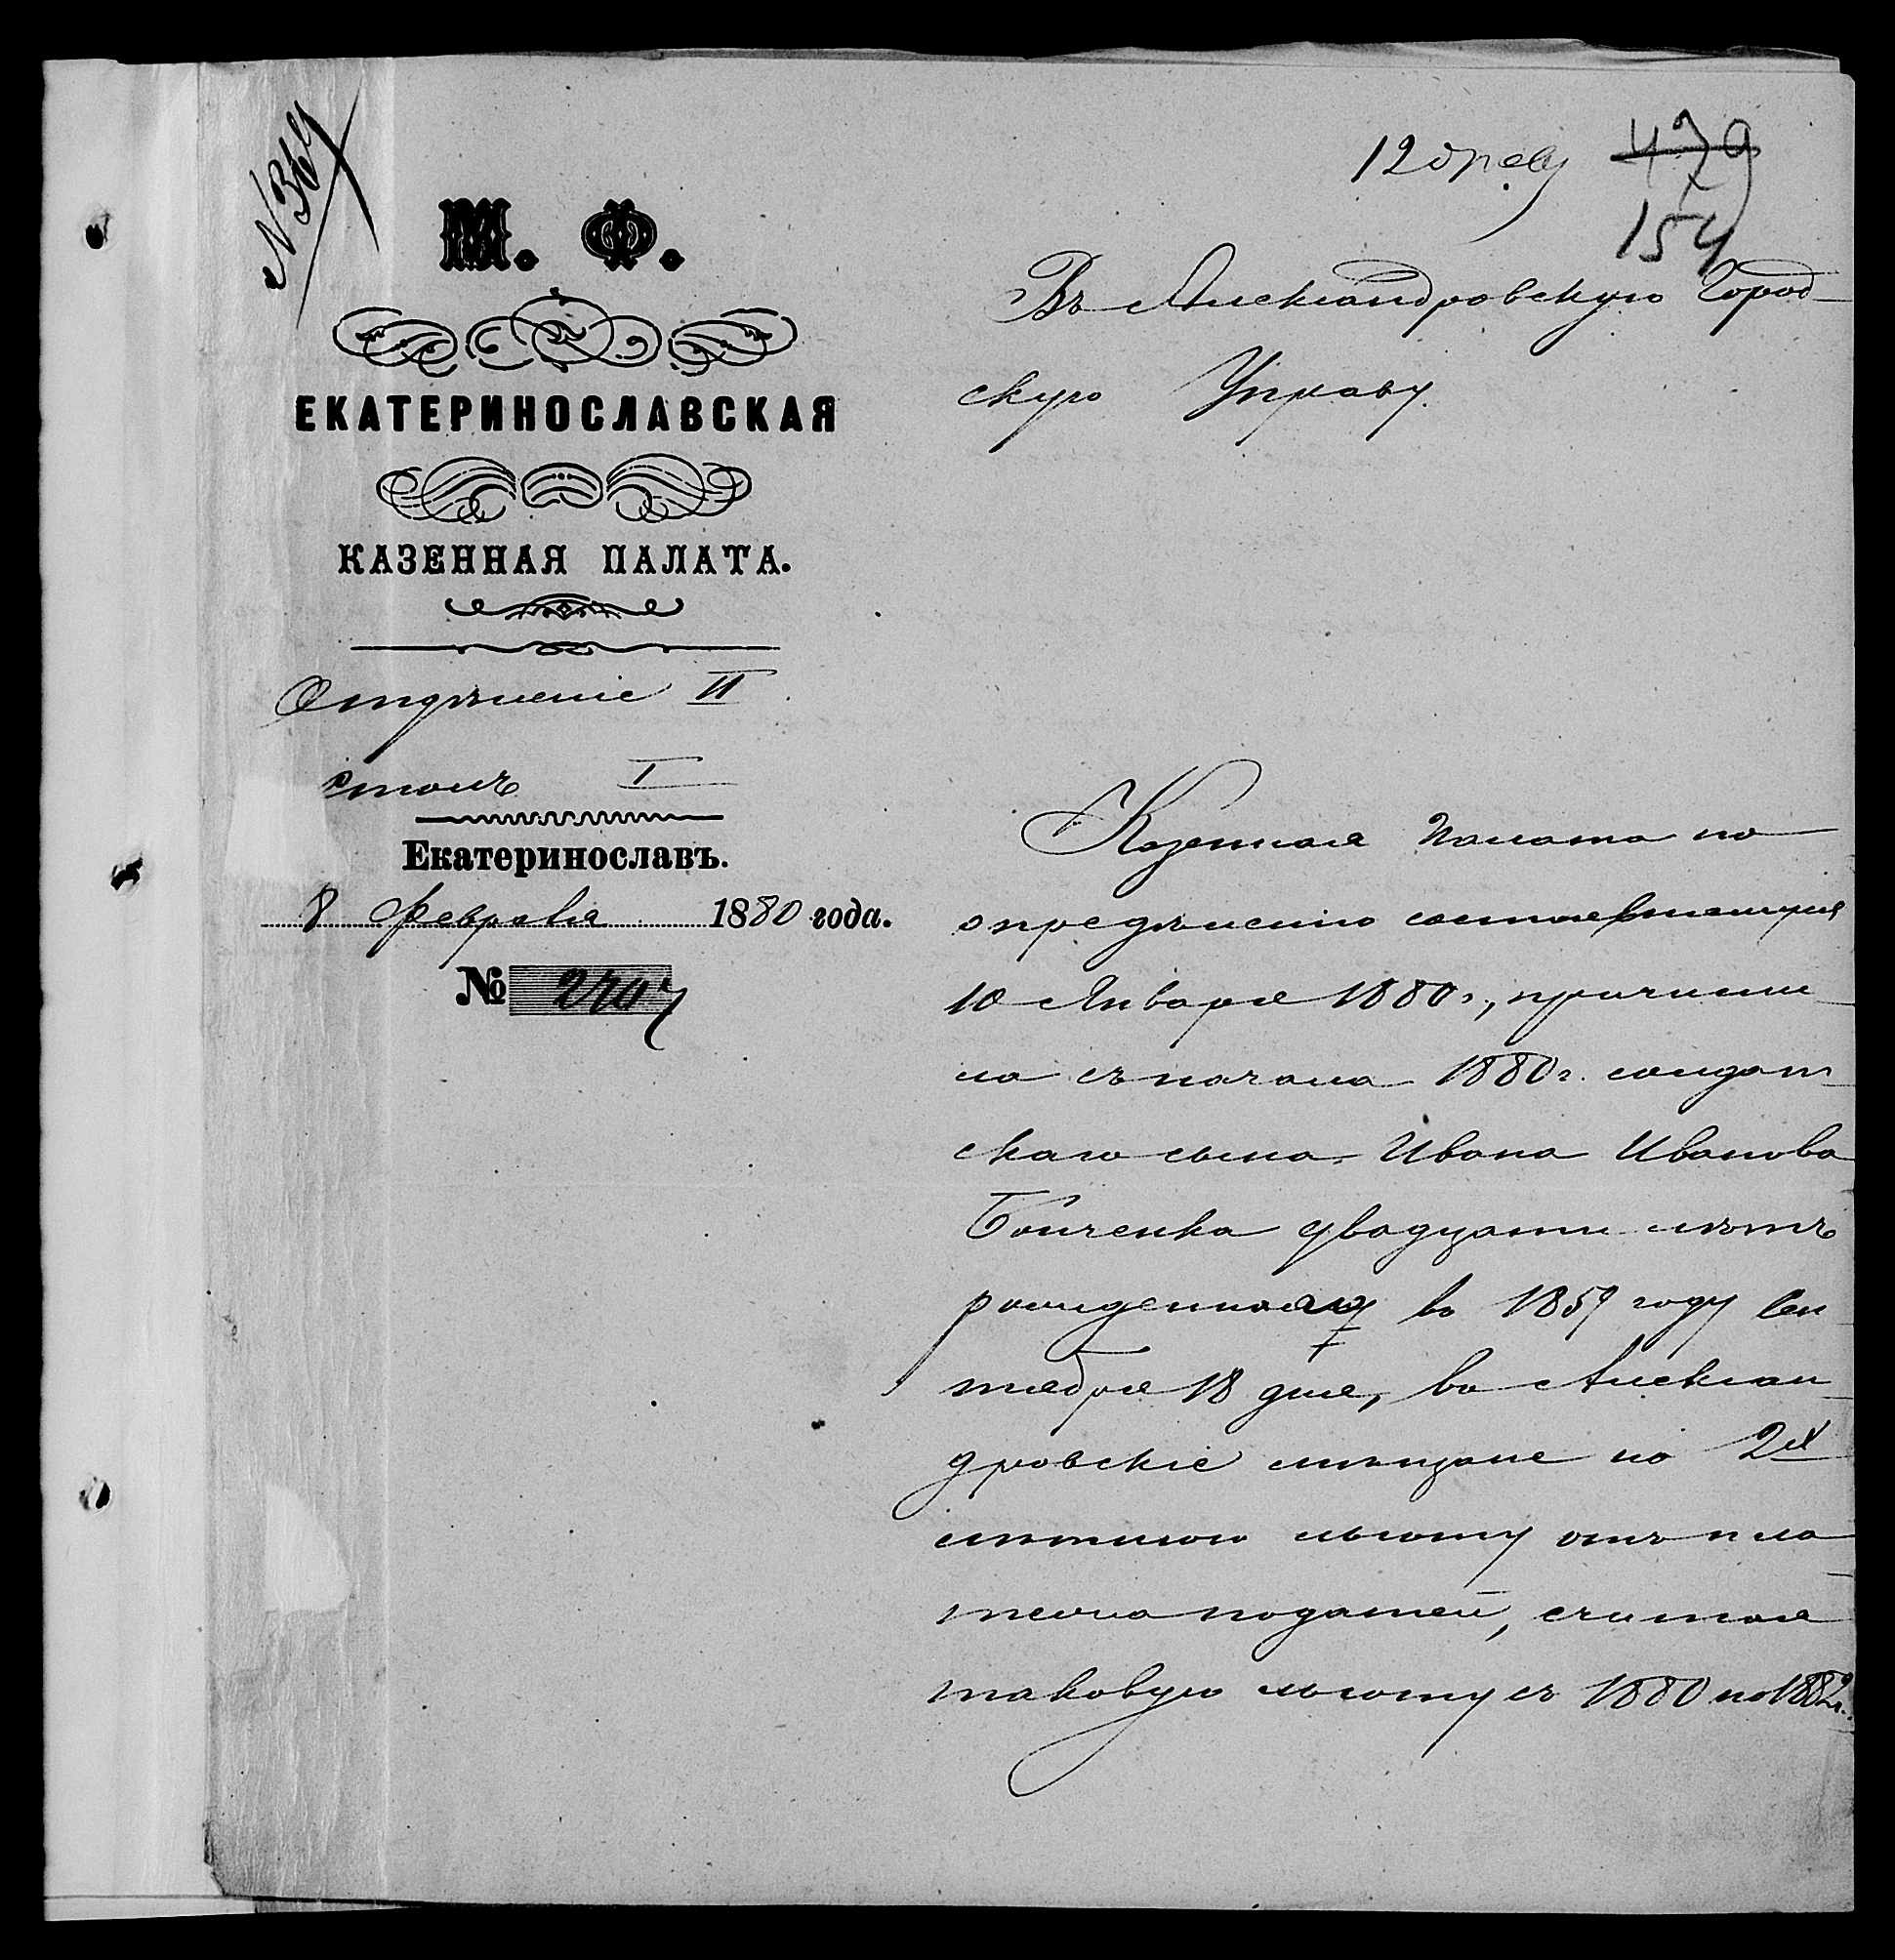 № 364
М. Ф.
ЕКАТЕРИНОСЛАВСКАЯ
КАЗЕННАЯ ПАЛАТА.
Отдѣленіе II
столъ I
Екатеринославъ.
8 Февраля 1880 года.
№ 2707
12 февр
479
154
Въ Александровскую Город-
скую Управу.
Казенная Палата по
опредѣленію состоявшемуся
10 Января 1880 г., причисли-
ла съ начала 1880 г. солдат-
скаго сына Ивана Иванова
Бойченка двадцати лѣтъ
рожденнаго въ 1859 году Сен-
тября 18 дня, въ Алексан-
дровскіе мѣщане по 2х
лѣтнюю льготу отъ пла-
тежа податей, считая
таковую льготу съ 1880 по 1882 г.